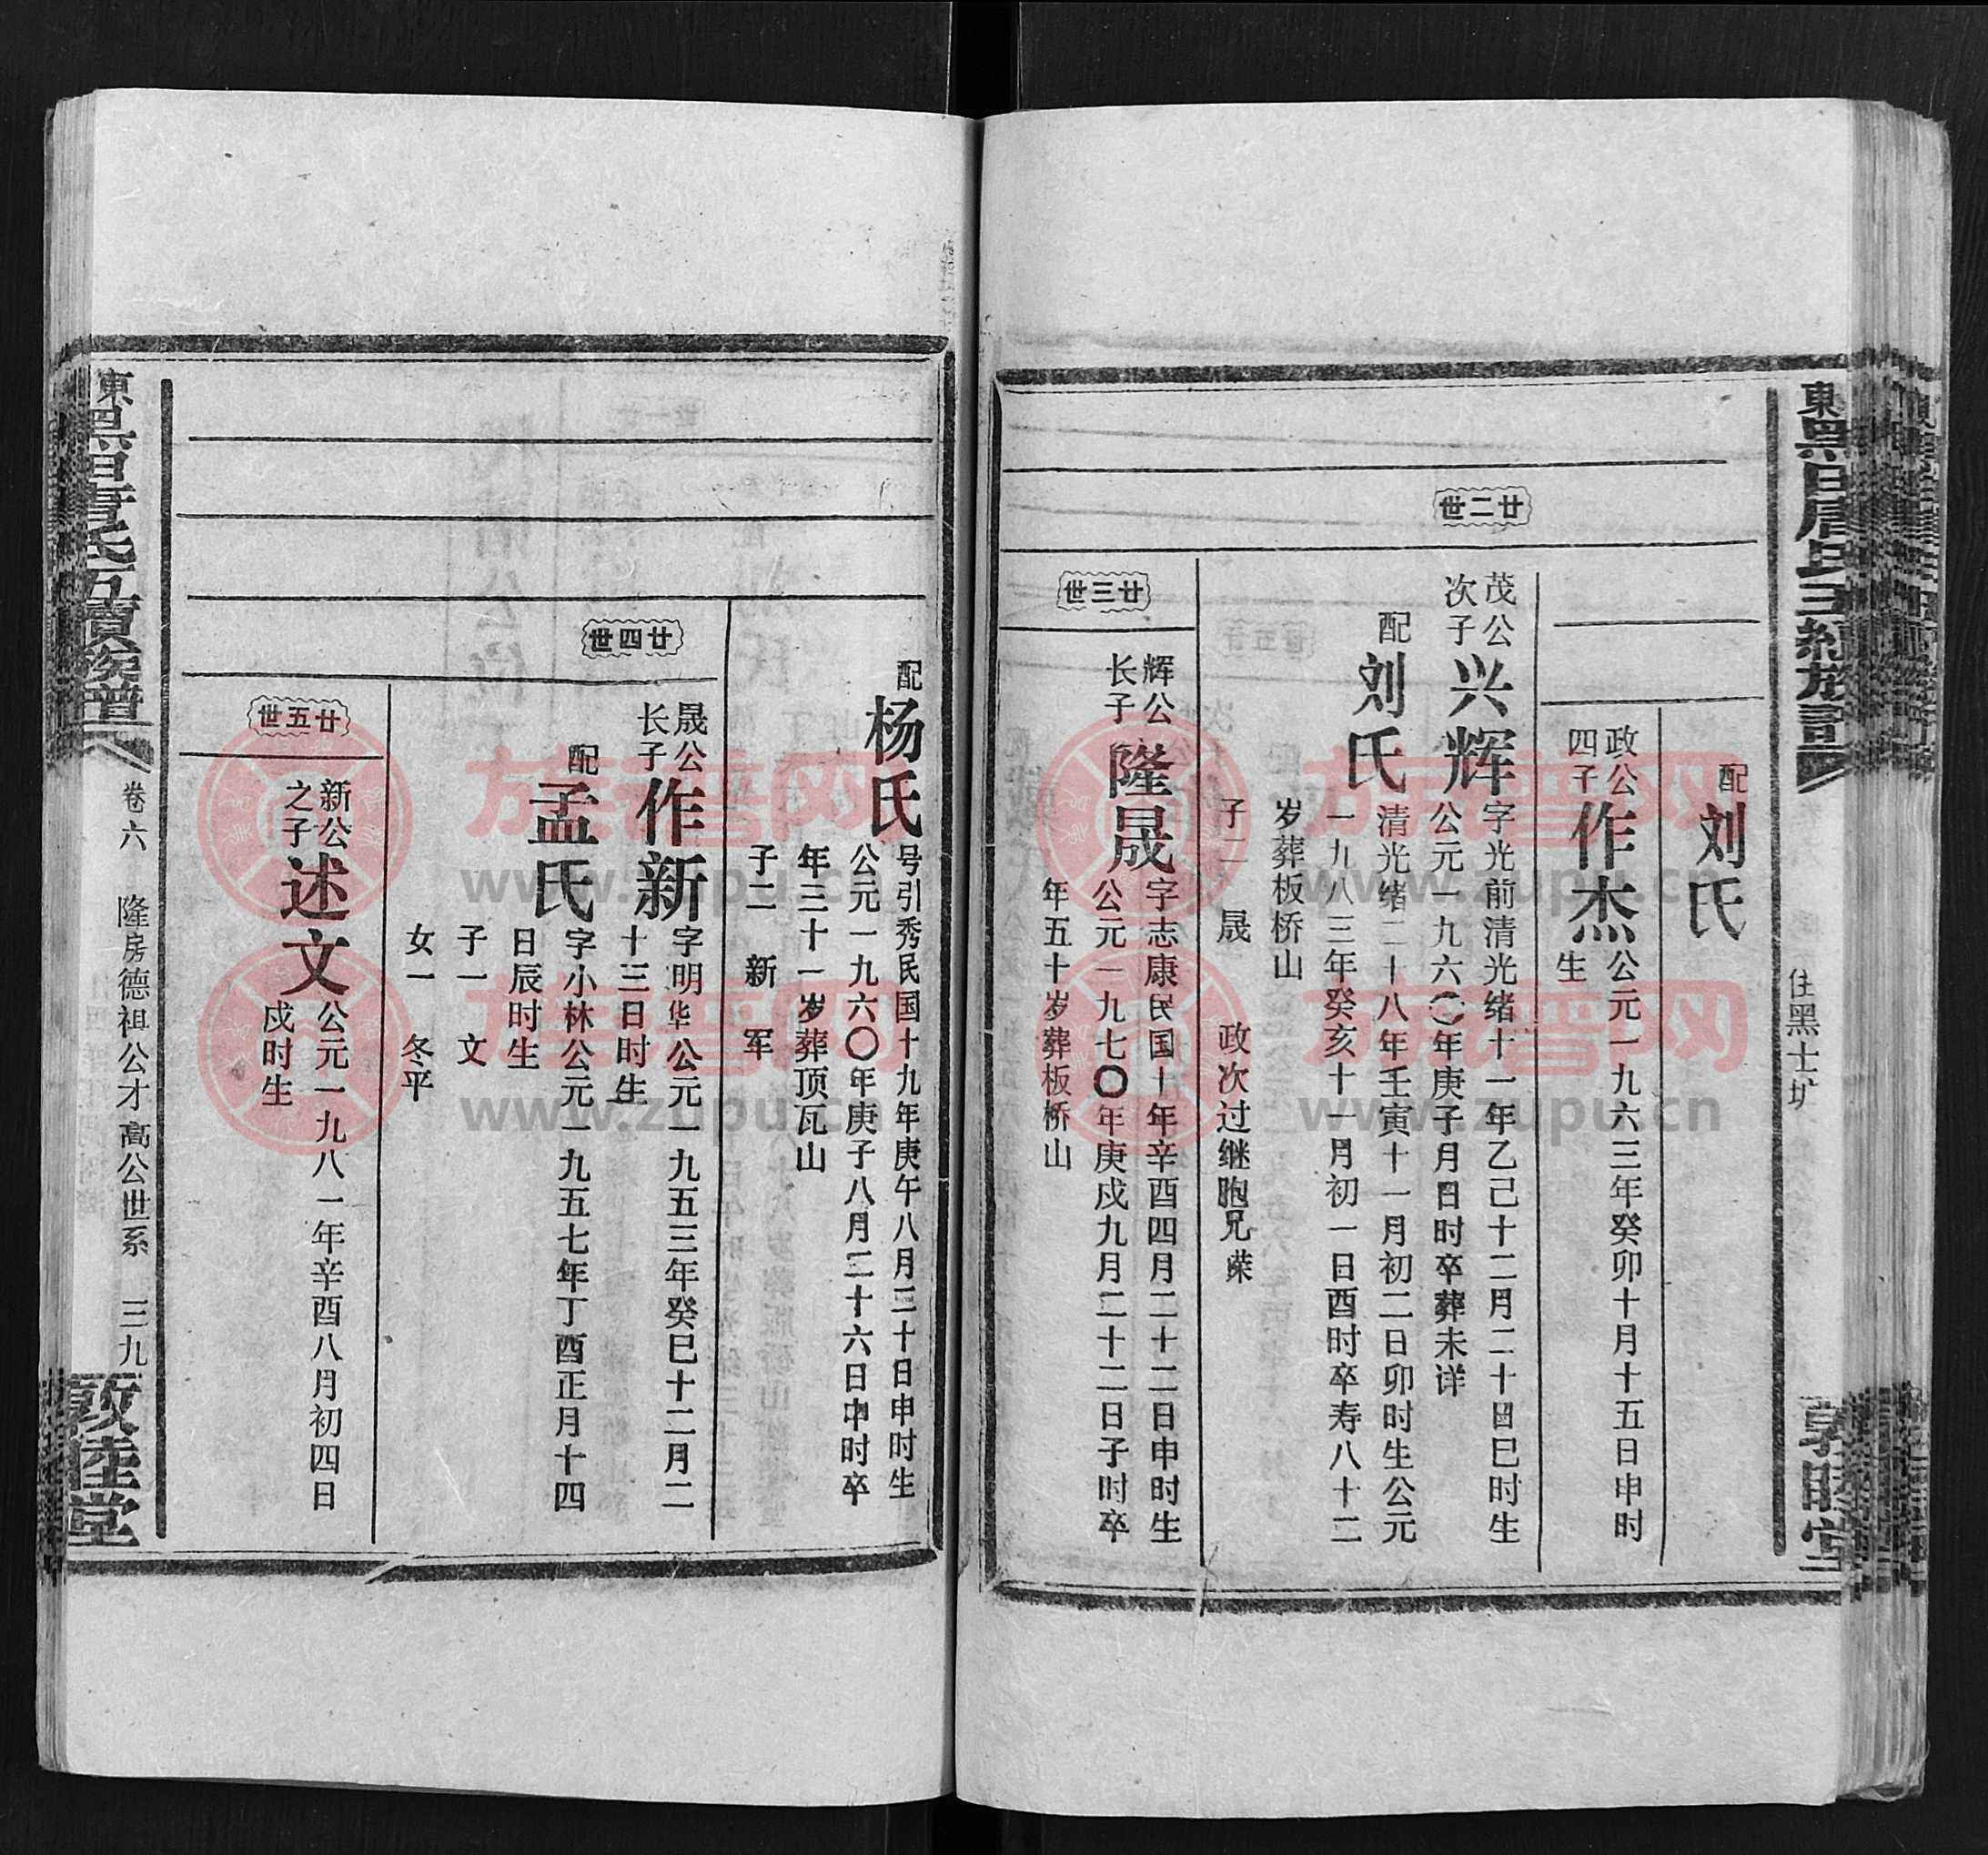 住黑土圹
配刘氏
政公
四子
作杰
公元一九六三年癸卯十月十五日申时
生
廿二世
茂公
次子
兴辉
字光前清光绪十一年乙己十二月二十日巳时生
公元一九六〇年庚子月日时卒葬未详
配刘氏
清光绪二十八年壬寅十一月初二日卯时生公元
一九八三年癸亥十一月初一日酉时卒寿八十二
岁葬板桥山
子二 晟 政次过继胞兄荣
廿三世
辉公
长子
隆晟
字志康民国十年辛酉四月二十二日申时生
公元一九七〇年庚戌九月二十二日子时卒
年五十岁葬板桥山
配杨氏
号引秀民国十九年庚午八月三十日申时生
公元一九六〇年庚子八月二十六日申时卒
年三十一岁葬顶瓦山
子二 新 军
廿四世
晟公
长子
作新
字明华公元一九五三年癸巳十二月二
十三日时生
配孟氏
字小林公元一九五七年丁酉正月十四
日辰时生
子一 文
女一 冬平
廿五世
新公
之子
述文
公元一九八一年辛酉八月初四日
戌时生
東黑田唐氏五續族譜
卷六 隆房德祖公才高公世系 三九
敦睦堂
族谱网
www.zupu.cn
族谱网
www.zupu.cn
族谱网
www.zupu.cn
族谱网
www.zupu.cn